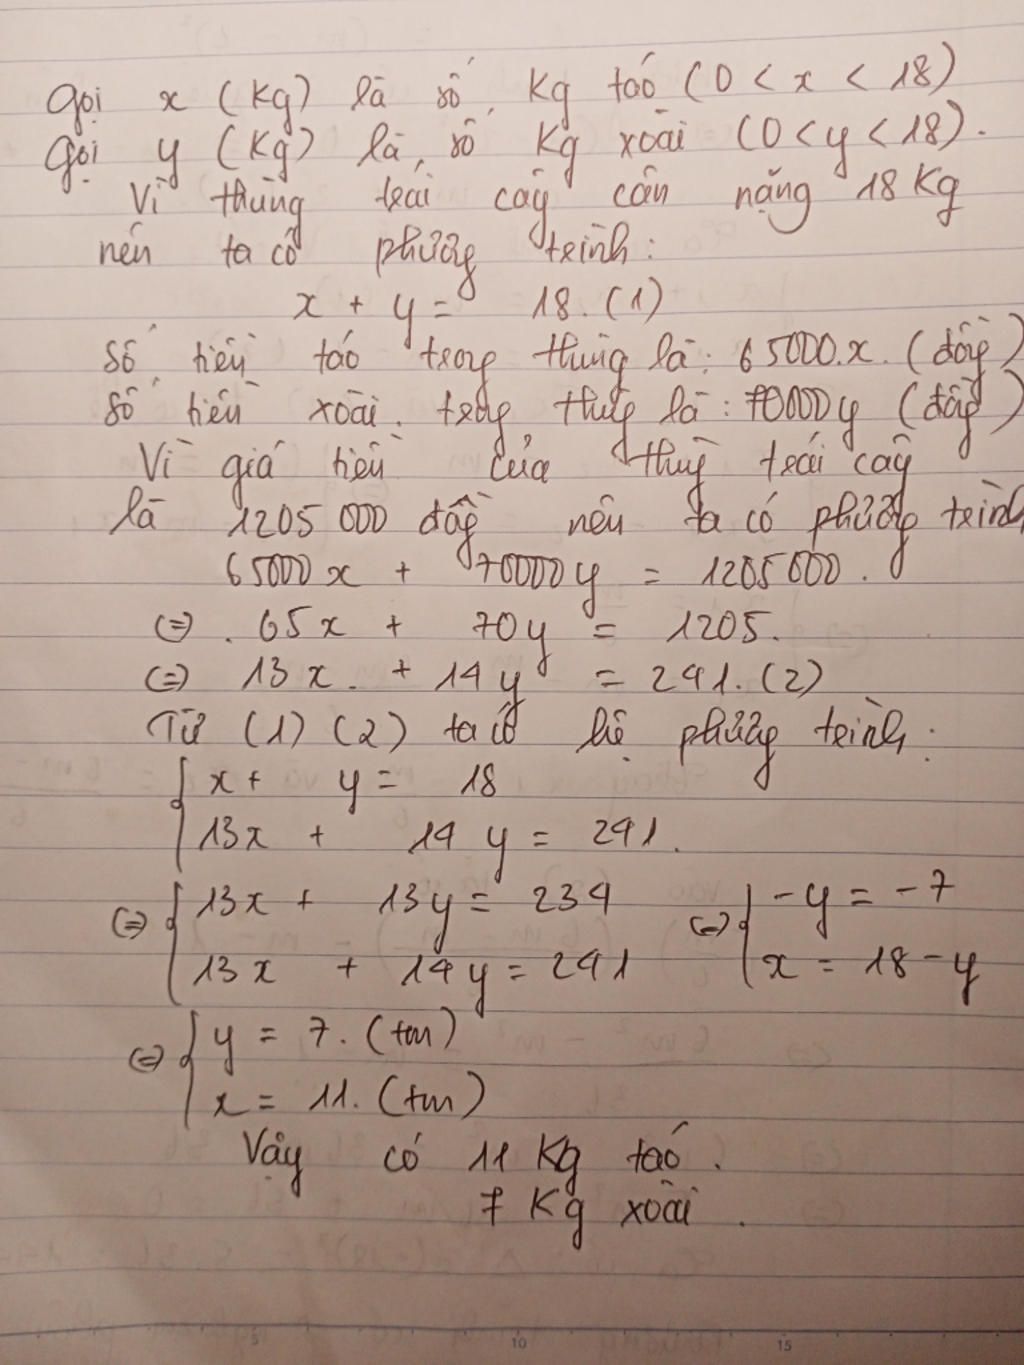 Gọi x (Kg) là số Kg táo (0 < x < 18)
Gọi y (Kg) là số Kg xoài (0 < y < 18).
Vì thùng trái cây cân nặng 18 Kg
nên ta có phương trình:
x + y = 18. (1)
Số tiền táo trong thùng là: 65000.x. (đồng)
Số tiền xoài. trong thùng là: 70000y (đồng)
Vì giá tiền của thùng trái cây
là 1205 000 đồng nên ta có phương trình
65000x + 70000y = 1205000.
(=) . 65x + 70y = 1205.
(=) 13x. + 14y = 241. (2)
Từ (1) (2) ta có hệ phương trình:
x + y = 18
13x + 14y = 241.
(=) 13x + 13y = 234 (=) -y = -7
13x + 14y = 241 x = 18 - y
(=) y = 7. (tm)
x = 11. (tm)
Vậy có 11 Kg táo.
7 Kg xoài.
5 10 15